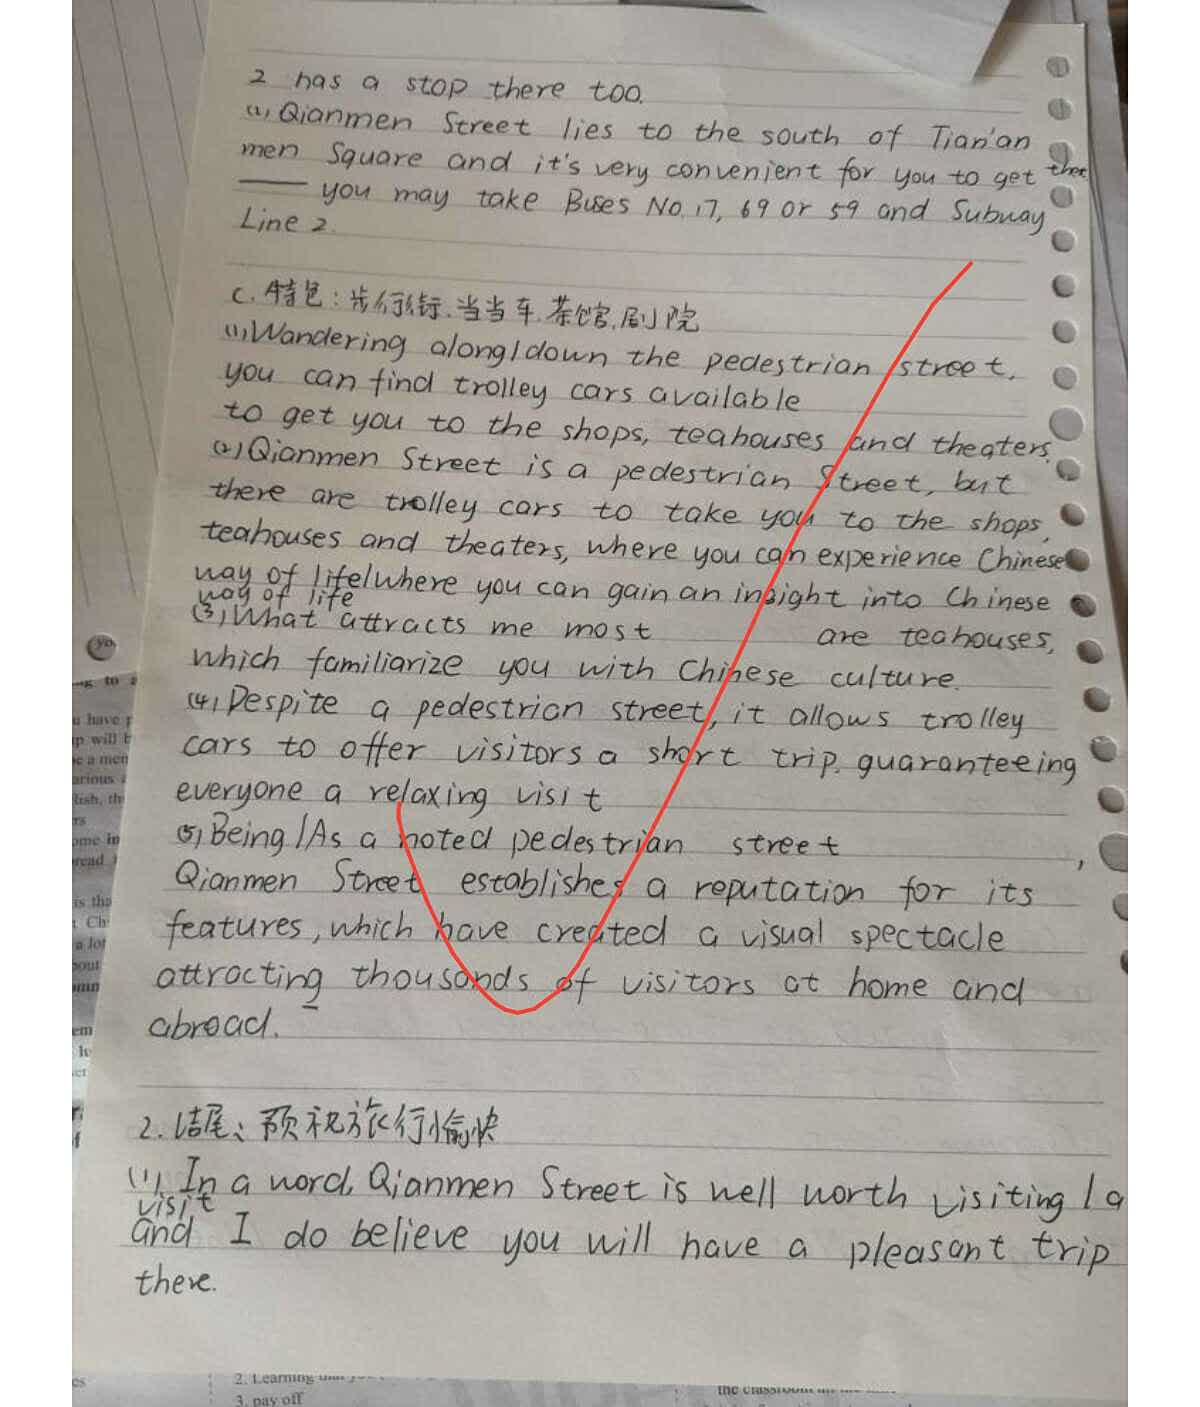 2 has a stop there too.
(2) Qianmen Street lies to the south of Tian'an
men Square and it's very convenient for you to get there
you may take Buses No.17, 69 or 59 and Subway
Line 2.
C. 特色: 步行街.当当车.茶馆.剧院
(1) Wandering along/down the pedestrian street,
you can find trolley cars available
to get you to the shops, teahouses and theaters.
(2) Qianmen Street is a pedestrian Street, but
there are trolley cars to take you to the shops,
teahouses and theaters, where you can experience Chinese
way of life/where you can gain an insight into Chinese
way of life
(3) What attracts me most are teahouses,
which familiarize you with Chinese culture.
(4) Despite a pedestrian street, it allows trolley
cars to offer visitors a short trip, guaranteeing
everyone a relaxing visit
(5) Being/As a noted pedestrian street,
Qianmen Street establishes a reputation for its
features, which have created a visual spectacle
attracting thousands of visitors at home and
abroad.
2. 结尾: 预祝旅行愉快
(1) In a word, Qianmen Street is well worth visiting/a
visit
and I do believe you will have a pleasant trip
there.
yo
have
up will
be a men
lish, th
ome in
is tha
2. Learning
3. pay off
the classroom